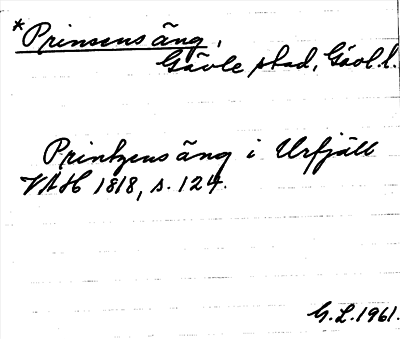 *Prinsens äng,
Gävle stad, Gävl.l.
Printzens äng i Urfjäll
VAH 1818, s. 124.
G.L. 1961.